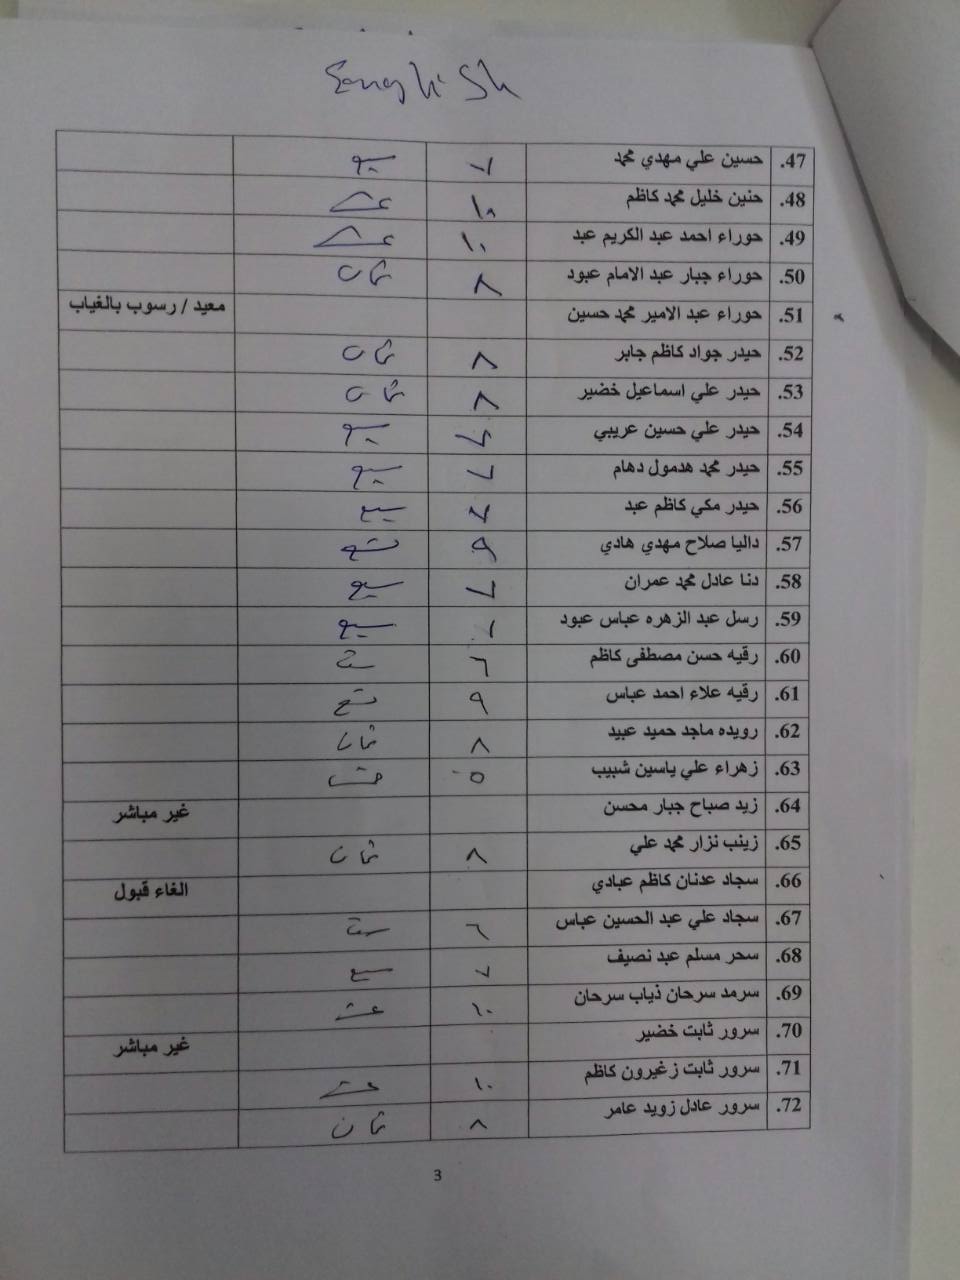 47. حسين علي مهدي محمد ٧ سبع
48. حنين خليل محمد كاظم ١٠ عشر
49. حوراء احمد عبد الكريم عبد ١٠ عشر
50. حوراء جبار عبد الامام عبود ٨ ثمان
51. حوراء عبد الامير محمد حسين معيد / رسوب بالغياب
52. حيدر جواد كاظم جابر ٨ ثمان
53. حيدر علي اسماعيل خضير ٨ ثمان
54. حيدر علي حسين عريبي ٧ سبع
55. حيدر محمد هدمول دهام ٧ سبع
56. حيدر مكي كاظم عبد ٧ سبع
57. داليا صلاح مهدي هادي ٩ تسع
58. دنا عادل محمد عمران ٧ سبع
59. رسل عبد الزهره عباس عبود ٧ سبع
60. رقيه حسن مصطفى كاظم ٦ ست
61. رقيه علاء احمد عباس ٩ تسع
62. رويده ماجد حميد عبيد ٨ ثمان
63. زهراء علي ياسين شبيب ٥ خمس
64. زيد صباح جبار محسن غير مباشر
65. زينب نزار محمد علي ٨ ثمان
66. سجاد عدنان كاظم عبادي الغاء قبول
67. سجاد علي عبد الحسين عباس ٦ ست
68. سحر مسلم عبد نصيف ٧ سبع
69. سرمد سرحان ذياب سرحان ١٠ عشر
70. سرور ثابت خضير غير مباشر
71. سرور ثابت زغيرون كاظم ١٠ عشر
72. سرور عادل زويد عامر ٨ ثمان
3